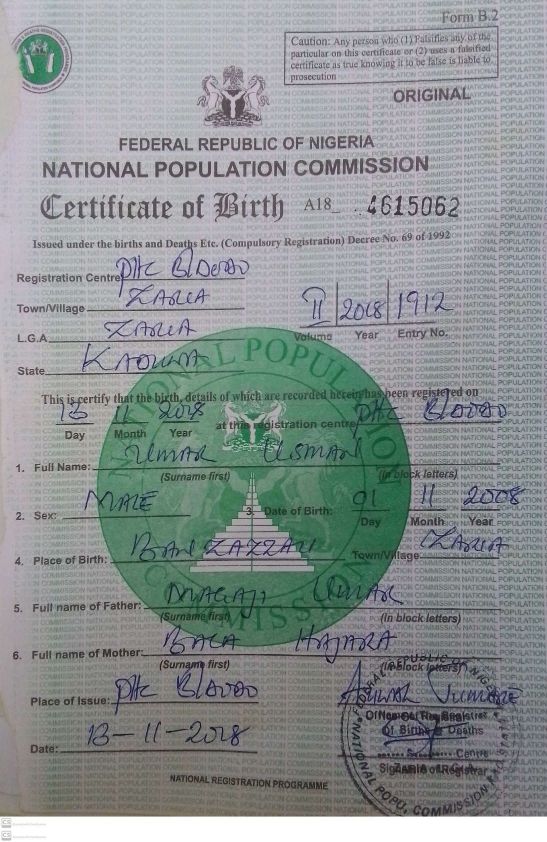 Form B.2
Caution: Any person who (1) Falsifies any of the
particular on this certificate or (2) uses a falsified
certificate as true knowing it to be false is liable to
prosecution
ORIGINAL
FEDERAL REPUBLIC OF NIGERIA
NATIONAL POPULATION COMMISSION
Certificate of Birth A18_ 4615062
Issued under the births and Deaths Etc. (Compulsory Registration) Decree No. 69 of 1992
Registration Centre PHC
Town/Village ZARIA
II 2018 1912
L.G.A ZARIA
Volume Year Entry No.
State KADUNA
This is certify that the birth, details of which are recorded herein has been registered on
13 11 2018 at this registration centre PHC
Day Month Year
1. Full Name: UMAR USMAN
(Surname first) (In block letters)
2. Sex: MALE 3. Date of Birth: 01 11 2008
Day Month Year
4. Place of Birth: BANZAZZAU Town/Village ZARIA
5. Full name of Father: MAGAJI UMAR
(Surname first) (In block letters)
6. Full name of Mother: BALA HAJARA
(Surname first) (In block letters)
Place of Issue: PHC
of Births & Deaths
Centre
Date: 13-11-2018
Signature of Registrar
NATIONAL REGISTRATION PROGRAMME
NATIONAL POPULATION COMMISSION